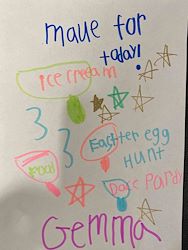 maue for
today!
ice cream
3
3
Eastter egg
Hunt
pool
Dace Pardy
Gemma